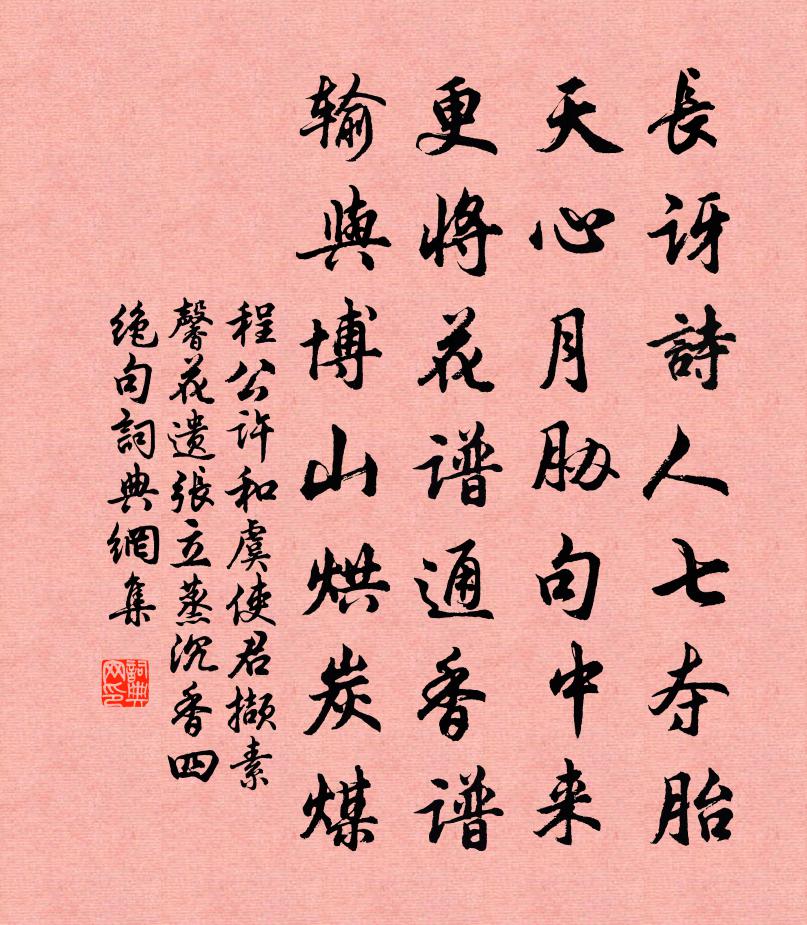 長讶詩人七夺胎
天心月胁句中来
更將花谱通香谱
输與博山烘炭煤
程公许和虞使君撷素
馨花遗張立蒸沉香四
绝句詞典網集
詞典
网印